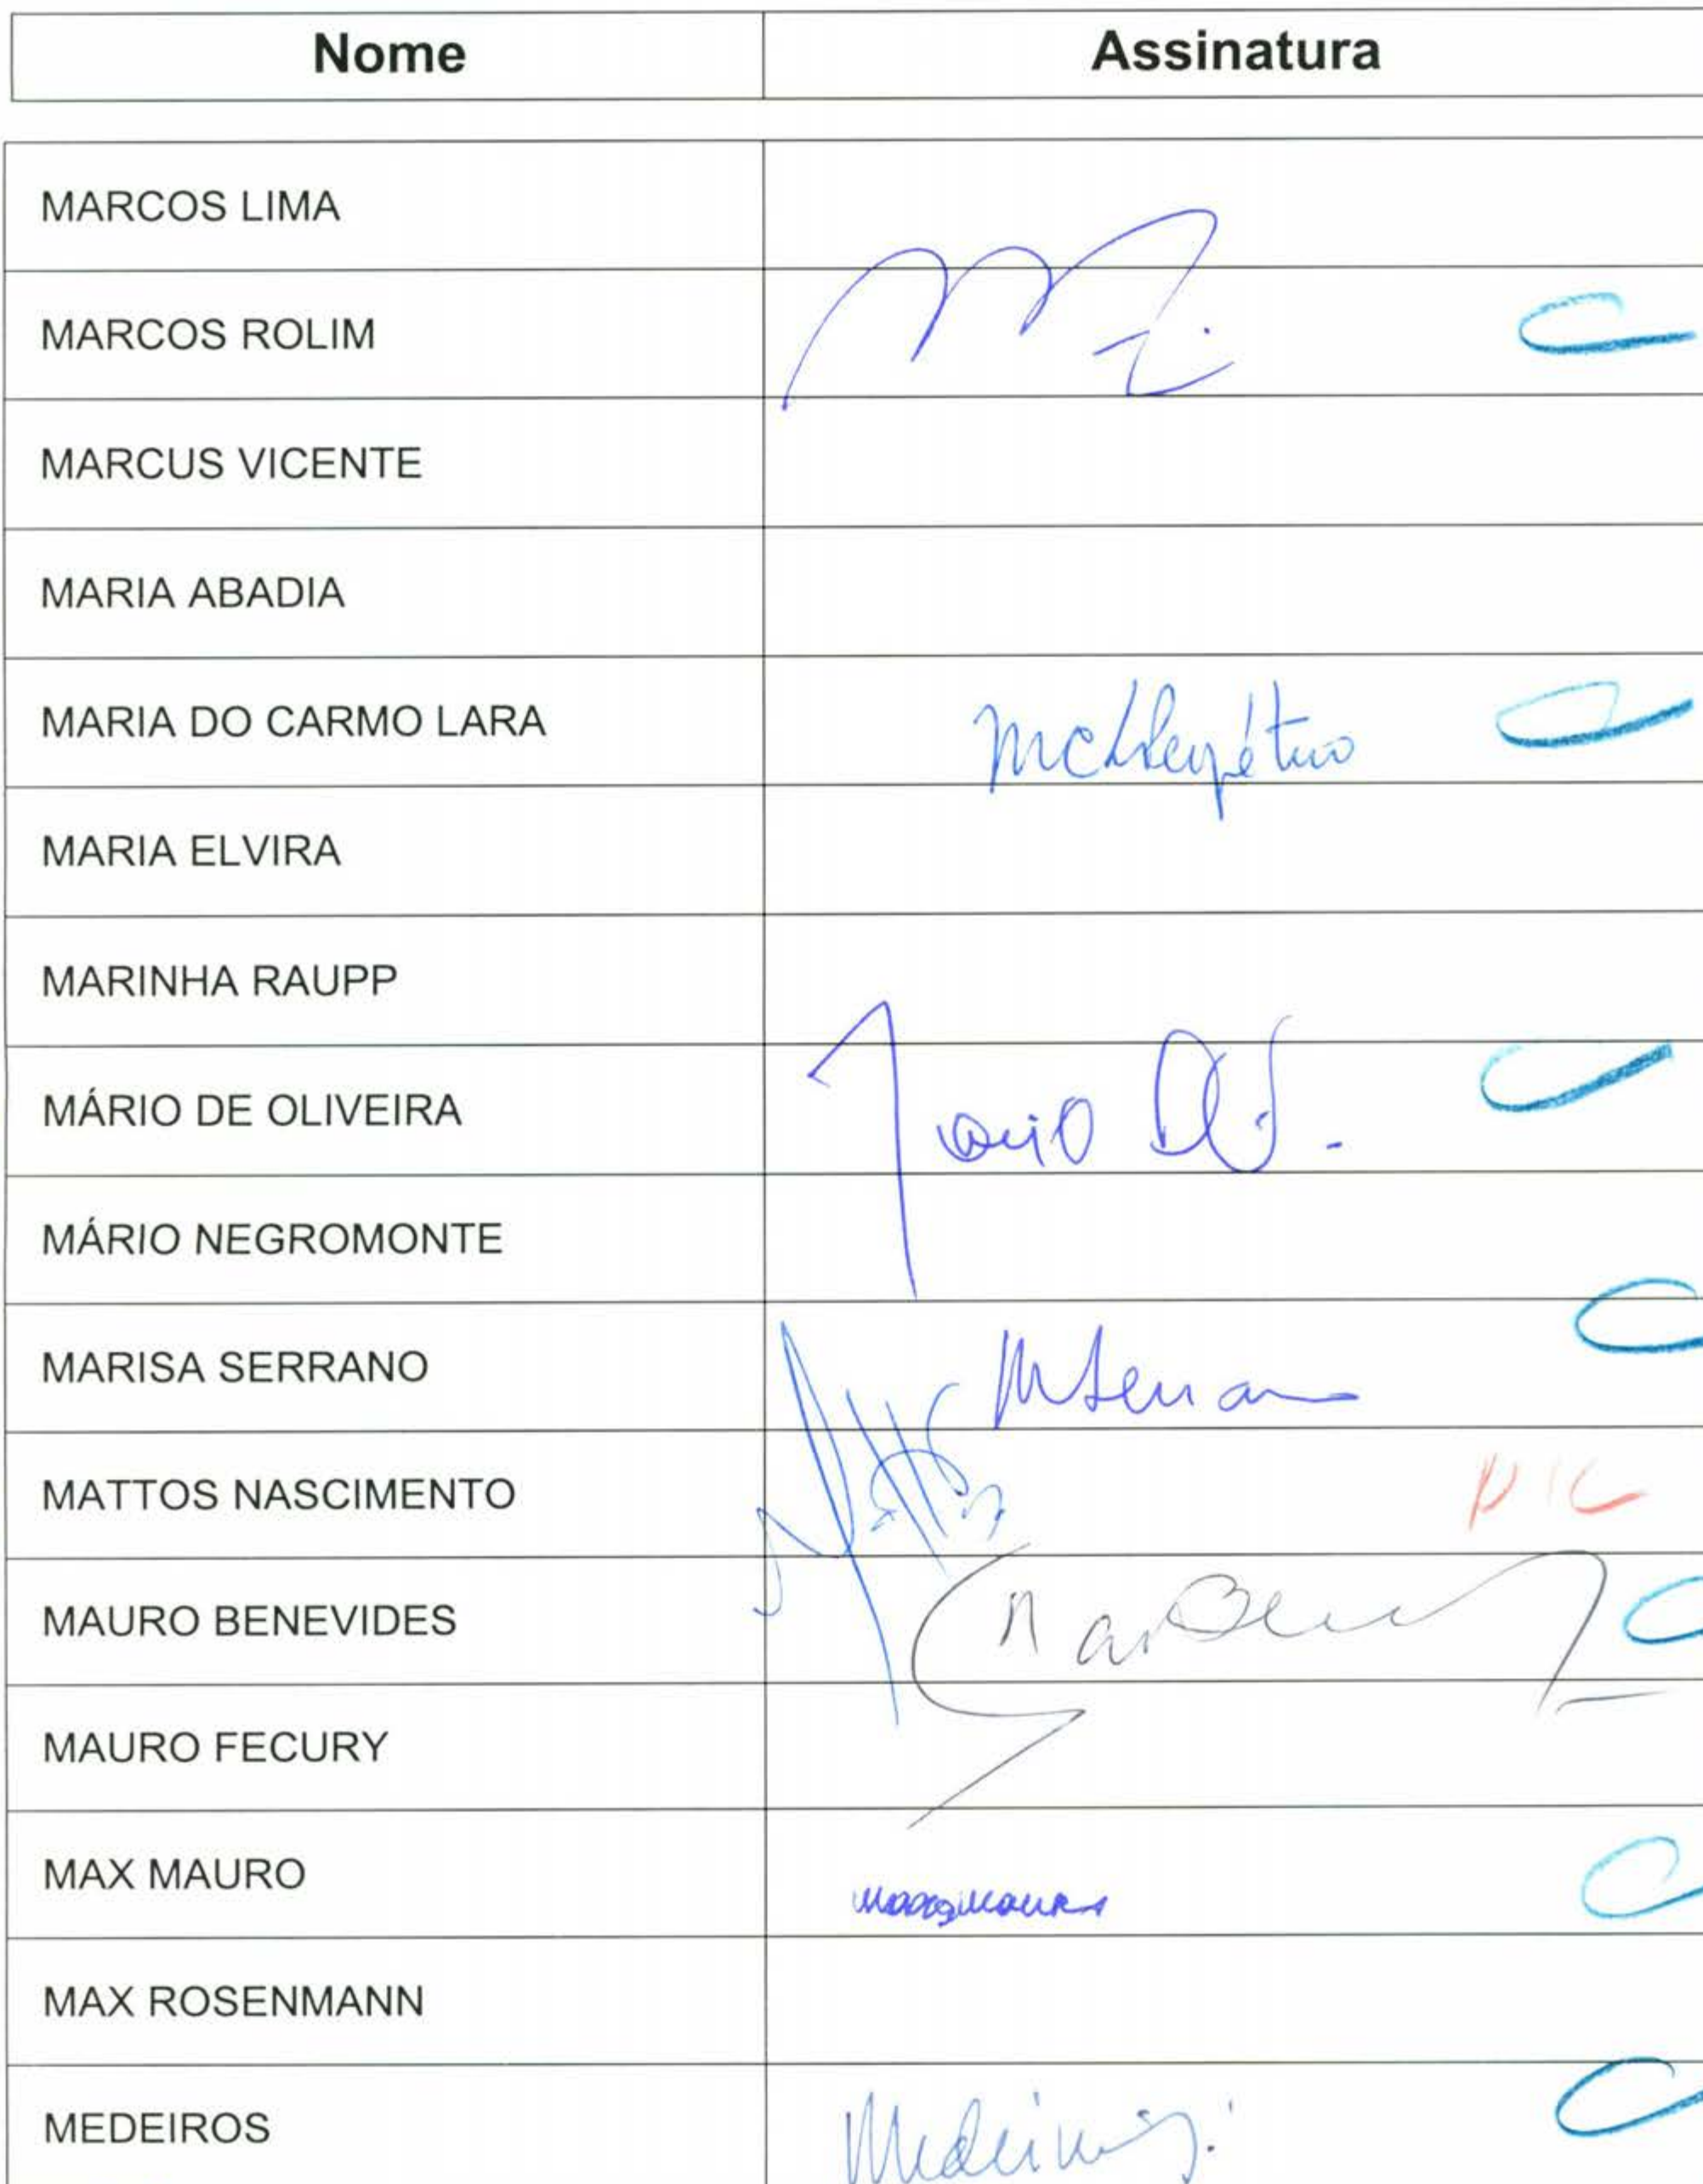 Nome Assinatura
MARCOS LIMA
MARCOS ROLIM
MARCUS VICENTE
MARIA ABADIA
MARIA DO CARMO LARA
MARIA ELVIRA
MARINHA RAUPP
MÁRIO DE OLIVEIRA
MÁRIO NEGROMONTE
MARISA SERRANO
MATTOS NASCIMENTO
MAURO BENEVIDES
MAURO FECURY
MAX MAURO
MAX ROSENMANN
MEDEIROS Medeiros